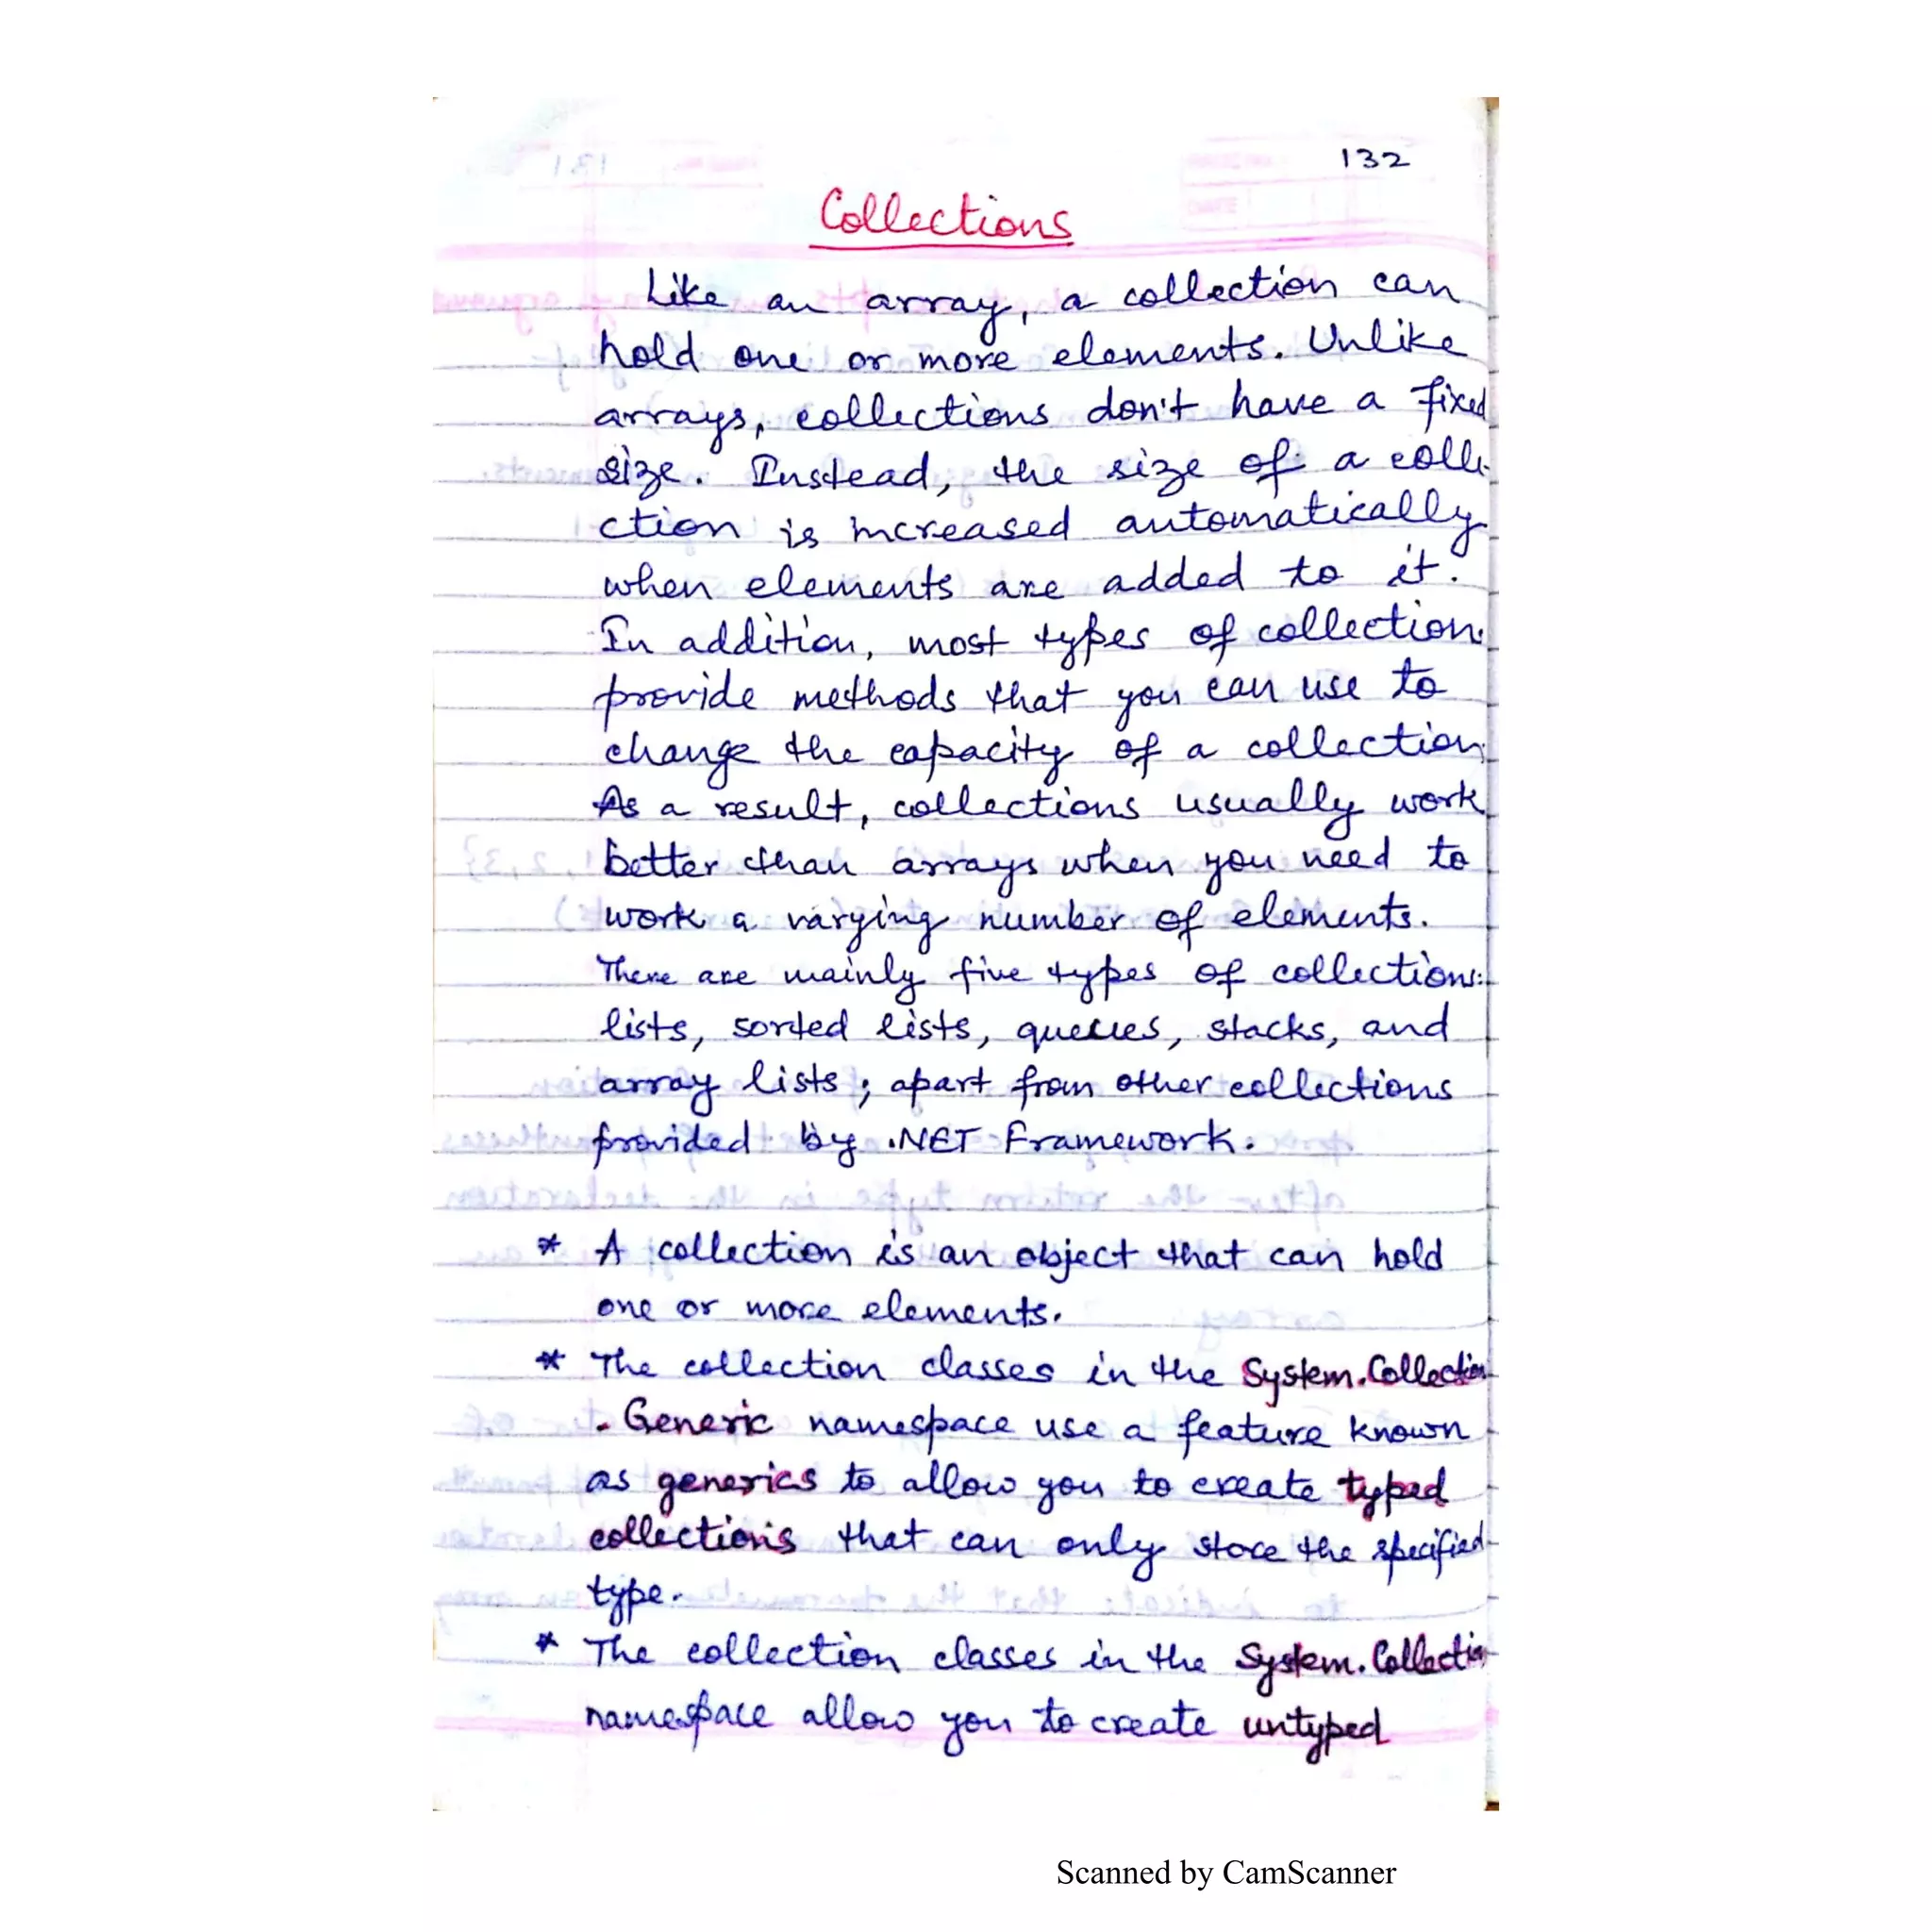 132
Collections
Like an array, a collection can
hold one or more elements. Unlike
arrays, collections don't have a fixed
size. Instead, the size of a colle
ction is increased automatically
when elements are added to it.
In addition, most types of collection
provide methods that you can use to
change the capacity of a collection.
As a result, collections usually work
better than arrays when you need to
work a varying number of elements.
There are mainly five types of collections:
lists, sorted lists, queues, stacks, and
array lists; apart from other collections
provided by .NET Framework.
* A collection is an object that can hold
one or more elements.
* The collection classes in the System.Collection
. Generic namespace use a feature known
as generics to allow you to create typed
collections that can only store the specified
type.
* The collection classes in the System.Collection
namespace allow you to create untyped
Scanned by CamScanner